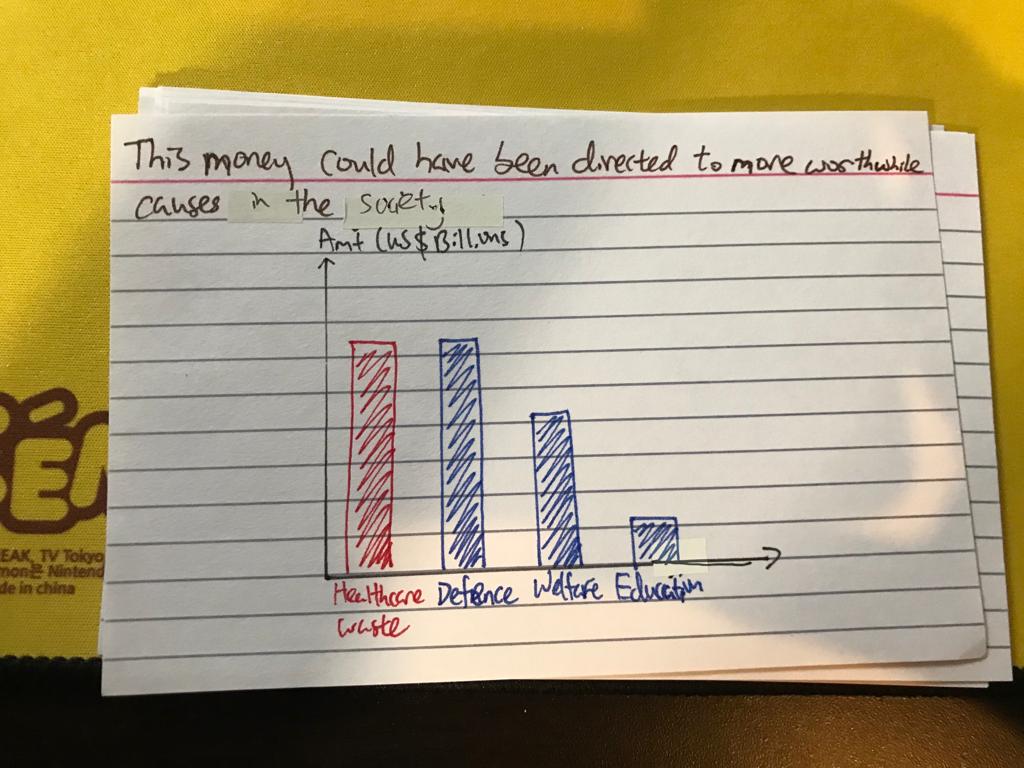 This money could have been directed to more worthwhile
causes in the society
Amt (US$Billions)
Healthcare Defence Welfare Education
waste
EAK, TV Tokyo
mon은 Nintend
de in china